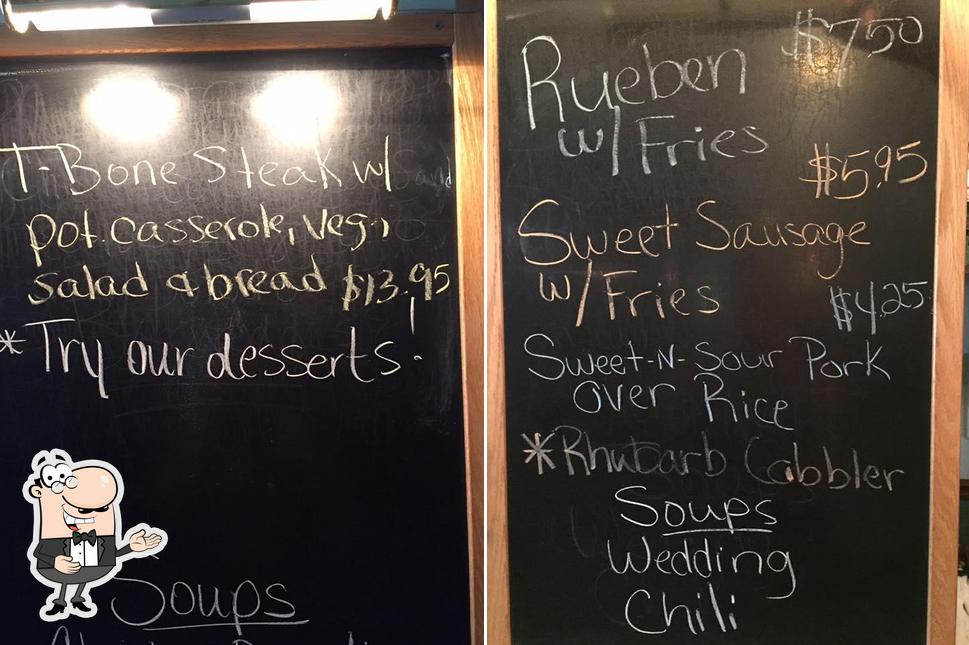 T-Bone Steak w/
pot. casserole, veg.,
salad & bread $13.95
*Try our desserts!
Soups
$7.50
Rueben
w/ Fries
$5.95
Sweet Sausage
w/ Fries
$4.25
Sweet-N-Sour Pork
over Rice
*Rhubarb Cobbler
Soups
Wedding
Chili